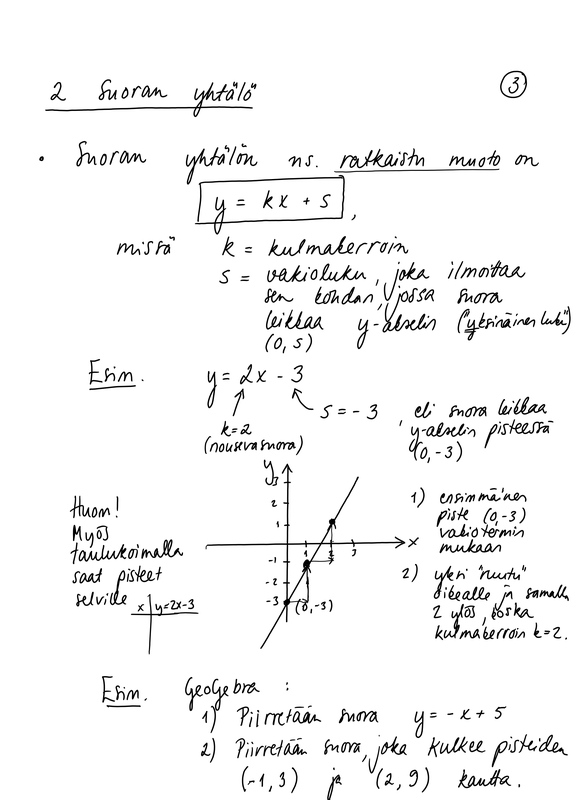 2 Suoran yhtälö
3
• Suoran yhtälön ns. ratkaistu muoto on
y = kx + s ,
missä k = kulmakerroin
s = vakioluku, joka ilmoittaa
sen kohdan, jossa suora
leikkaa y-akselin ("yksinäinen luku")
(0, s)
Esim. y = 2x - 3
s = -3 , eli suora leikkaa
y-akselin pisteessä
(0, -3)
k=2
(nouseva suora)
Huom!
Myös
taulukoimalla
saat pisteet
selville
x y=2x-3
y
3
2
1
-1
-2
-3
1 2 3
x
(0, -3)
1) ensimmäinen
piste (0,-3)
vakiotermin
mukaan
2) yksi "ruutu"
oikealle ja samalla
2 ylös, koska
kulmakerroin k=2.
Esim. GeoGebra :
1) Piirretään suora y = -x + 5
2) Piirretään suora, joka kulkee pisteiden
(-1, 3) ja (2, 9) kautta.